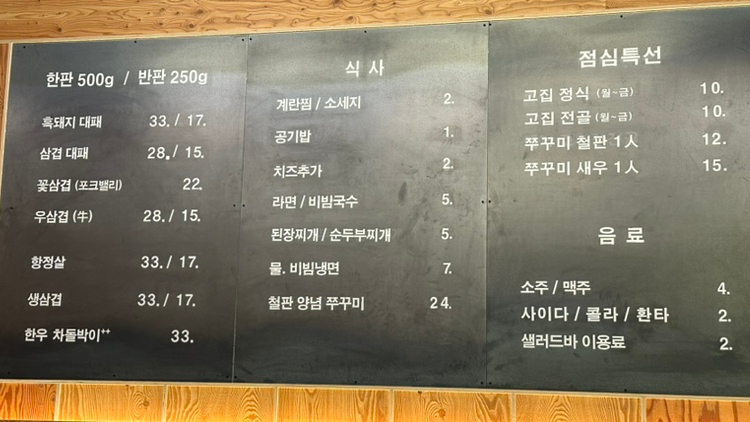 한판 500g / 반판 250g
흑돼지 대패 33. / 17.
삼겹 대패 28. / 15.
꽃삼겹 (포크밸리) 22.
우삼겹 (牛) 28. / 15.
항정살 33. / 17.
생삼겹 33. / 17.
한우 차돌박이⁺⁺ 33.
식 사
계란찜 / 소세지 2.
공기밥 1.
치즈추가 2.
라면 / 비빔국수 5.
된장찌개 / 순두부찌개 5.
물. 비빔냉면 7.
철판 양념 쭈꾸미 24.
점심특선
고집 정식 (월~금) 10.
고집 전골 (월~금) 10.
쭈꾸미 철판 1人 12.
쭈꾸미 새우 1人 15.
음 료
소주 / 맥주 4.
사이다 / 콜라 / 환타 2.
샐러드바 이용료 2.